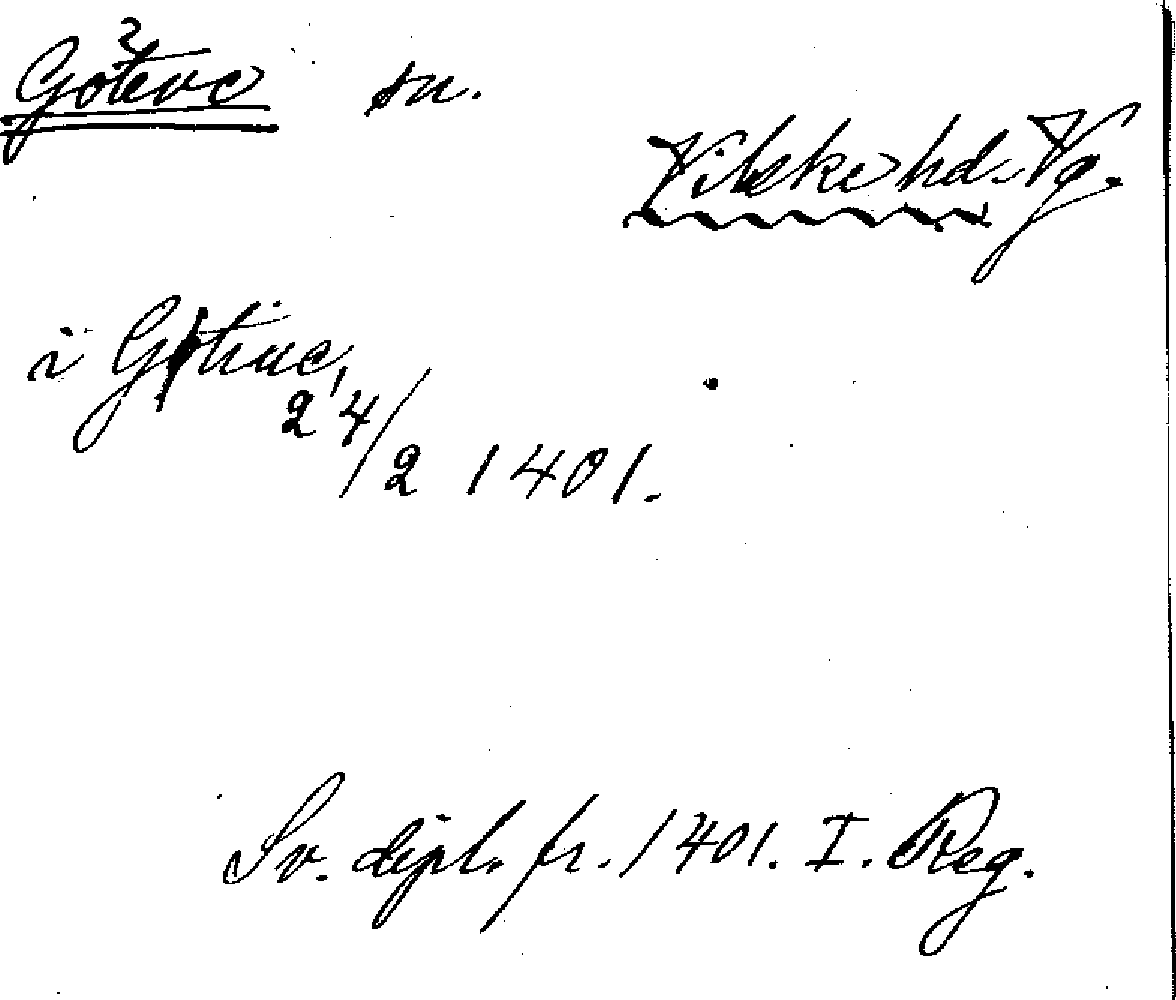 Göteve sn.
Vilske hd. Vg.
i Gøtiue,
24/2 1401.
Sv. dipl. fr. 1401. I. Reg.